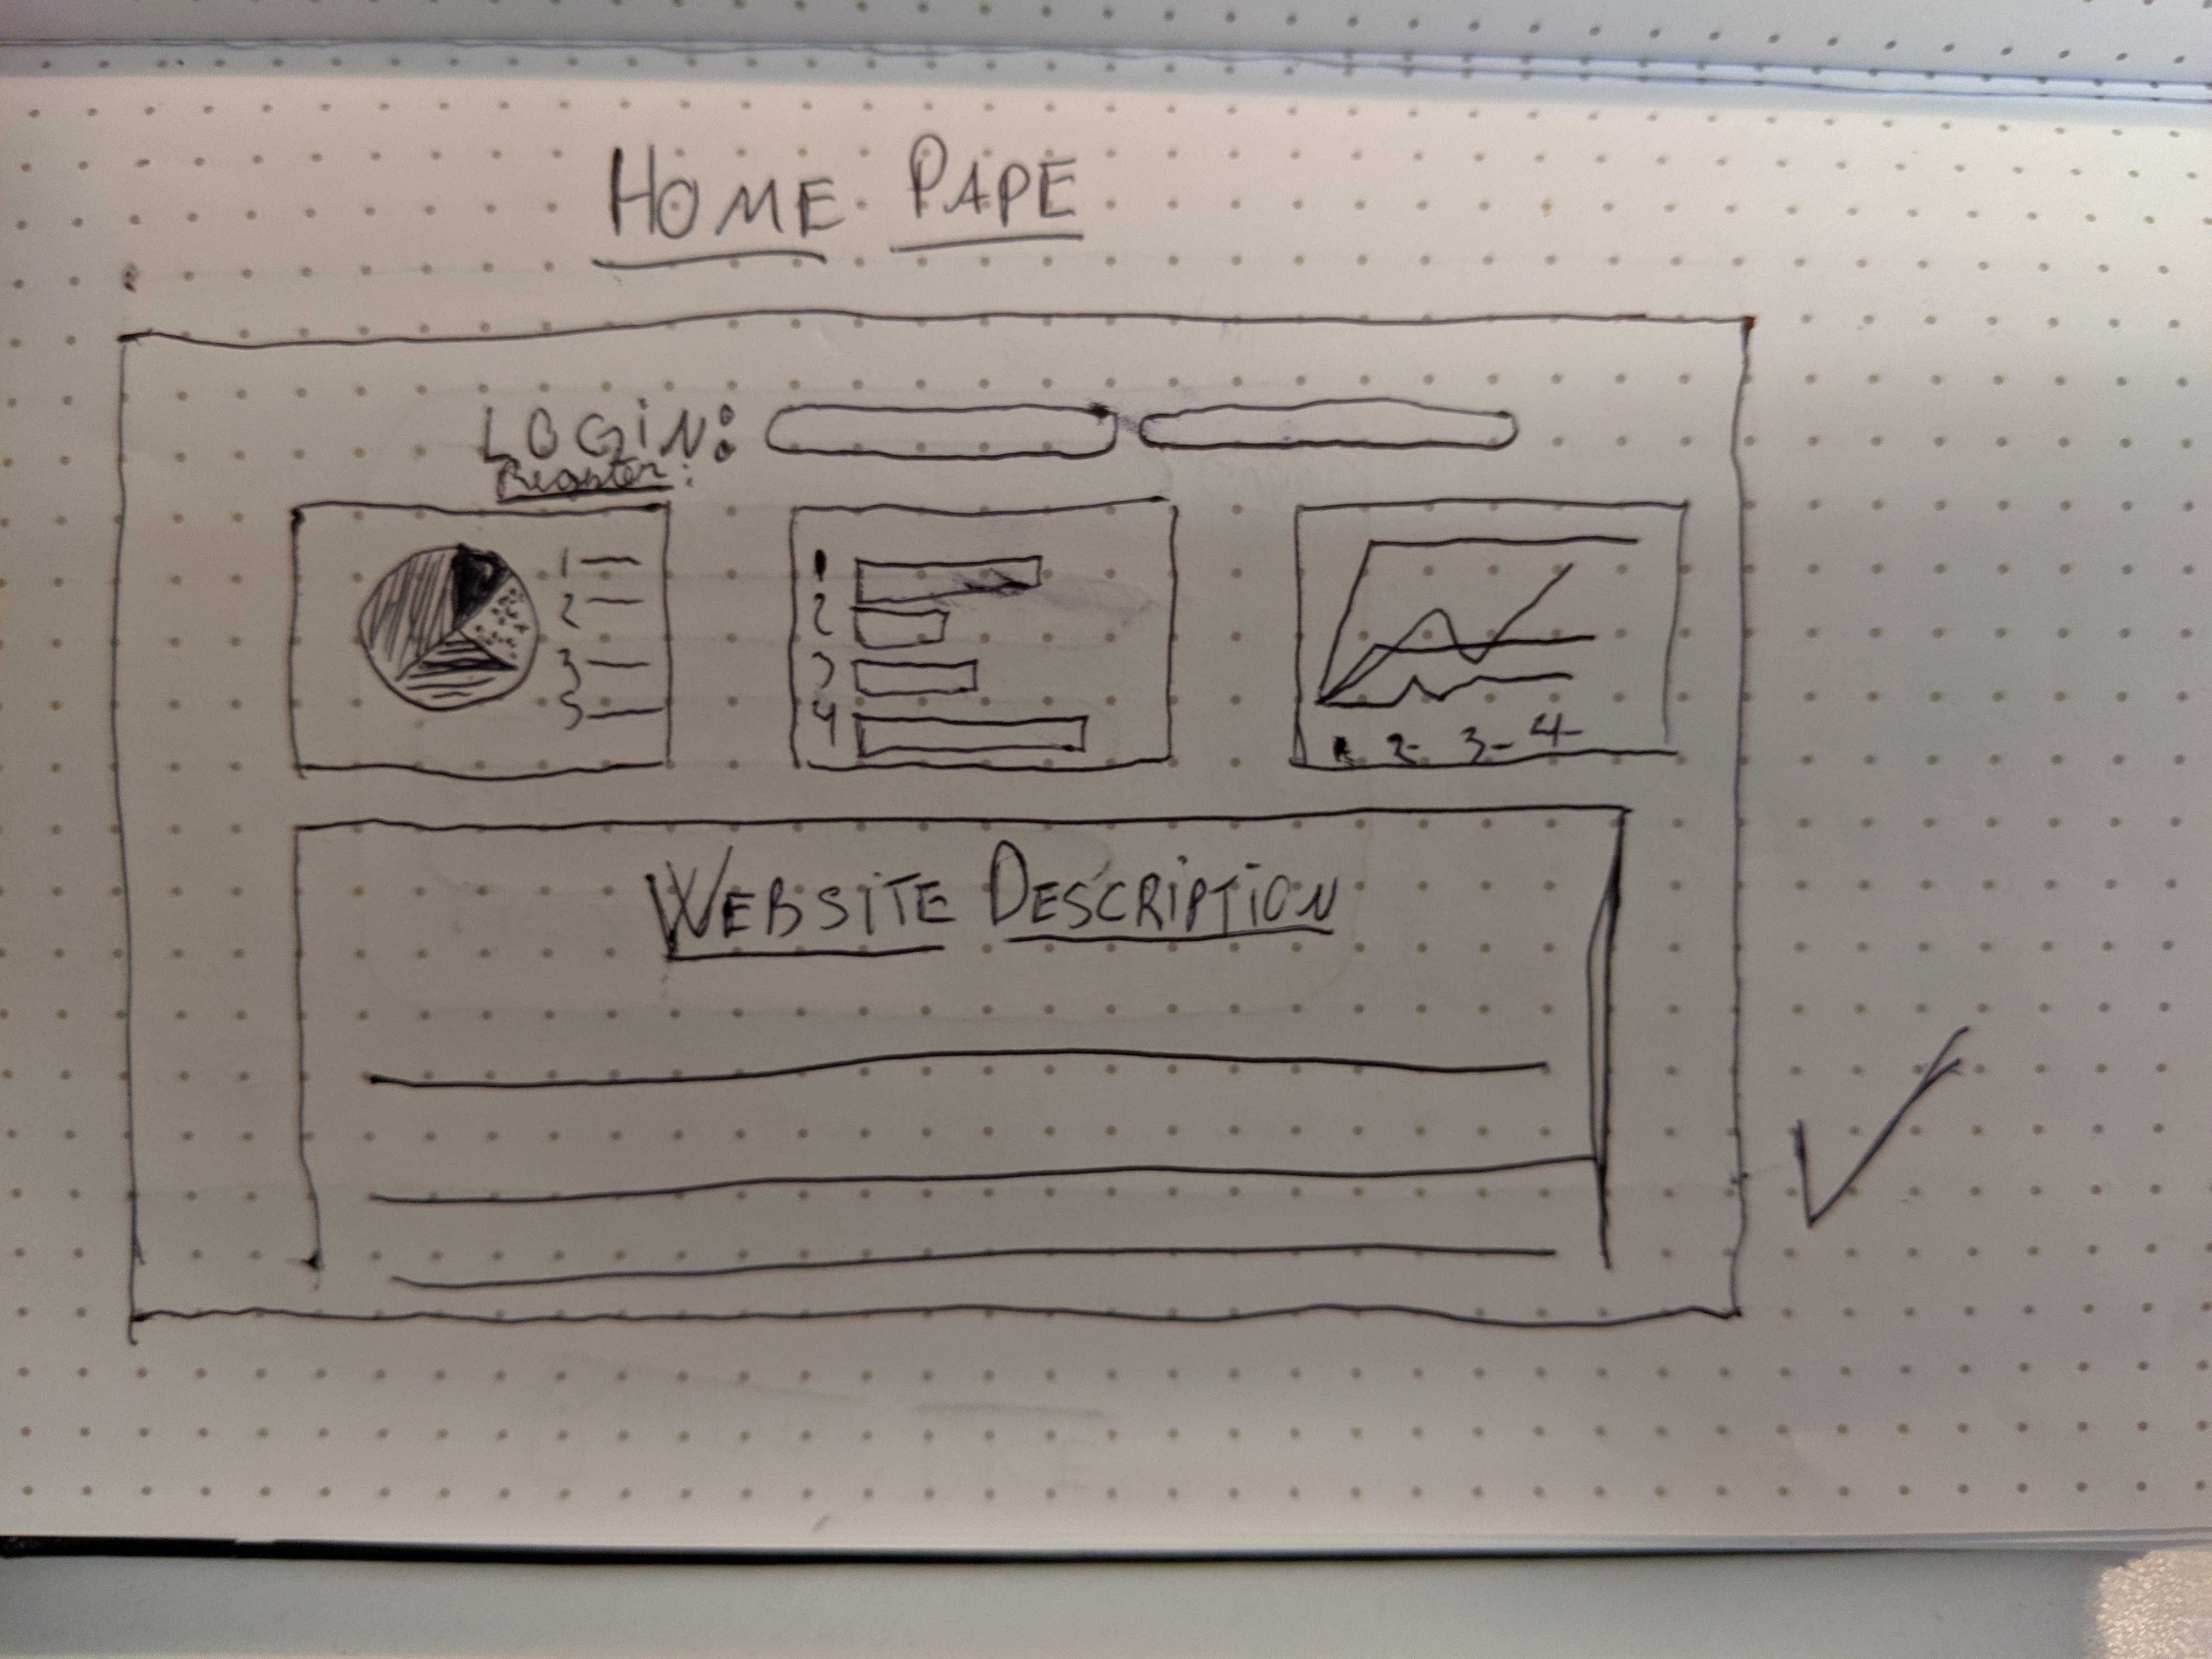 HOME PAPE
LOGIN:
Register:
1
2
3
5
1
2
3
4
1 2- 3- 4-
WEBSITE DESCRIPTION